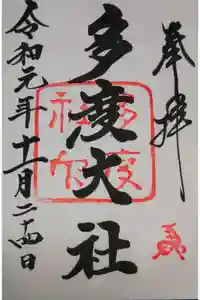 奉拝
多度大社
多度大社
令和元年十一月二十四日